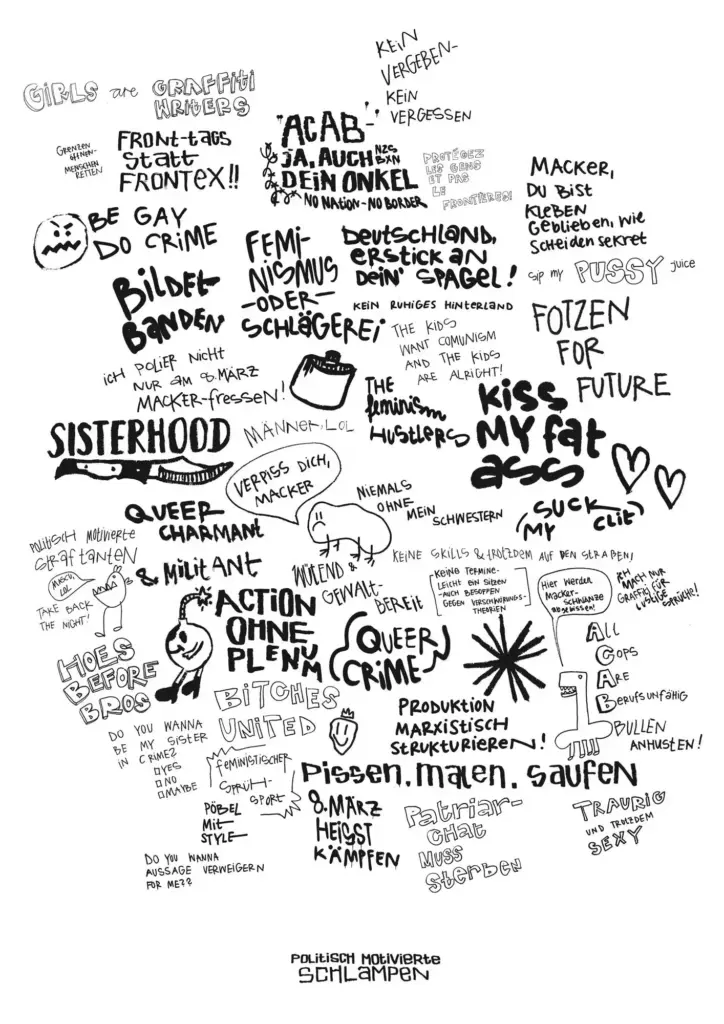 KEIN
VERGEBEN-
KEIN
VERGESSEN
GIRLS are GRAFFITI
WRITERS
GRENZEN
ÖFFNEN-
MENSCHEN
RETTEN
FRONT-tags
Statt
FRONTEX!!
"ACAB"-
JA, AUCH
DEIN ONKEL
NO NATION-NO BORDER
PROTÉGEZ
LES GENS
ET PAS
LE
FRONTIÈRES!
MACKER,
DU BIST
KLEBEN
GEBLIEBEN, WIE
SCHEIDENSEKRET
BE GAY
DO CRIME
FEMI-
NISMUS
-ODER-
SCHLÄGEREI
DEUTSCHLAND,
ERSTICK AN
DEIN' SPAGEL!
sip my PUSSY juice
BILDET
BANDEN
KEIN RUHIGES HINTERLAND
FOTZEN
FOR
FUTURE
THE KIDS
WANT COMUNISM
AND THE KIDS
ARE ALRIGHT!
ICH POLIER NICHT
NUR AM 8. MÄRZ
MACKER-FRESSEN!
THE
feminism
HUSTLERS
KISS
MY fat
ASS
SISTERHOOD
MÄNNER, LOL
VERPISS DICH,
MACKER
NIEMALS
OHNE
MEIN
SCHWESTERN
(SUCK
MY CLIT)
QUEER
CHARMANT
& MILITANT
POLITISCH MOTIVIERTE
STRAFTANTEN
KEINE SKILLS & TROTZDEM AUF DEN STRAßEN!
MACKER,
LOL
TAKE BACK
THE NIGHT!
WÜTEND &
GEWALT-
BEREIT
KEINE TERMINE-
LEICHT EIN SITZEN
-AUCH BESOFFEN
GEGEN VERSCHWÖRUNGS-
THEORIEN
Hier werden
Macker-
schwänze
abgebissen!
ICH
MACH NUR
GRAFFITI FÜR
LUSTIGE SPRÜCHE!
ACTION
OHNE
PLENUM
QUEER
CRIME
All
Cops
Are
Berufsunfähig
HOES
BEFORE
BROS
BITCHES
UNITED
PRODUKTION
MARXISTISCH
STRUKTURIEREN!
BULLEN
ANHUSTEN!
DO YOU WANNA
BE MY SISTER
IN CRIME?
□YES
□NO
□MAYBE
FEMINISTISCHER
SPRÜH-
SPORT
PISSEN. MALEN. SAUFEN
PÖBEL
MIT
STYLE
8. MÄRZ
HEIßT
KÄMPFEN
PATRIAR-
CHAT
MUSS
STERBEN
TRAURIG
UND TROTZDEM
SEXY
DO YOU WANNA
AUSSAGE VERWEIGERN
FOR ME??
POLITISCH MOTIVIERTE
SCHLAMPEN